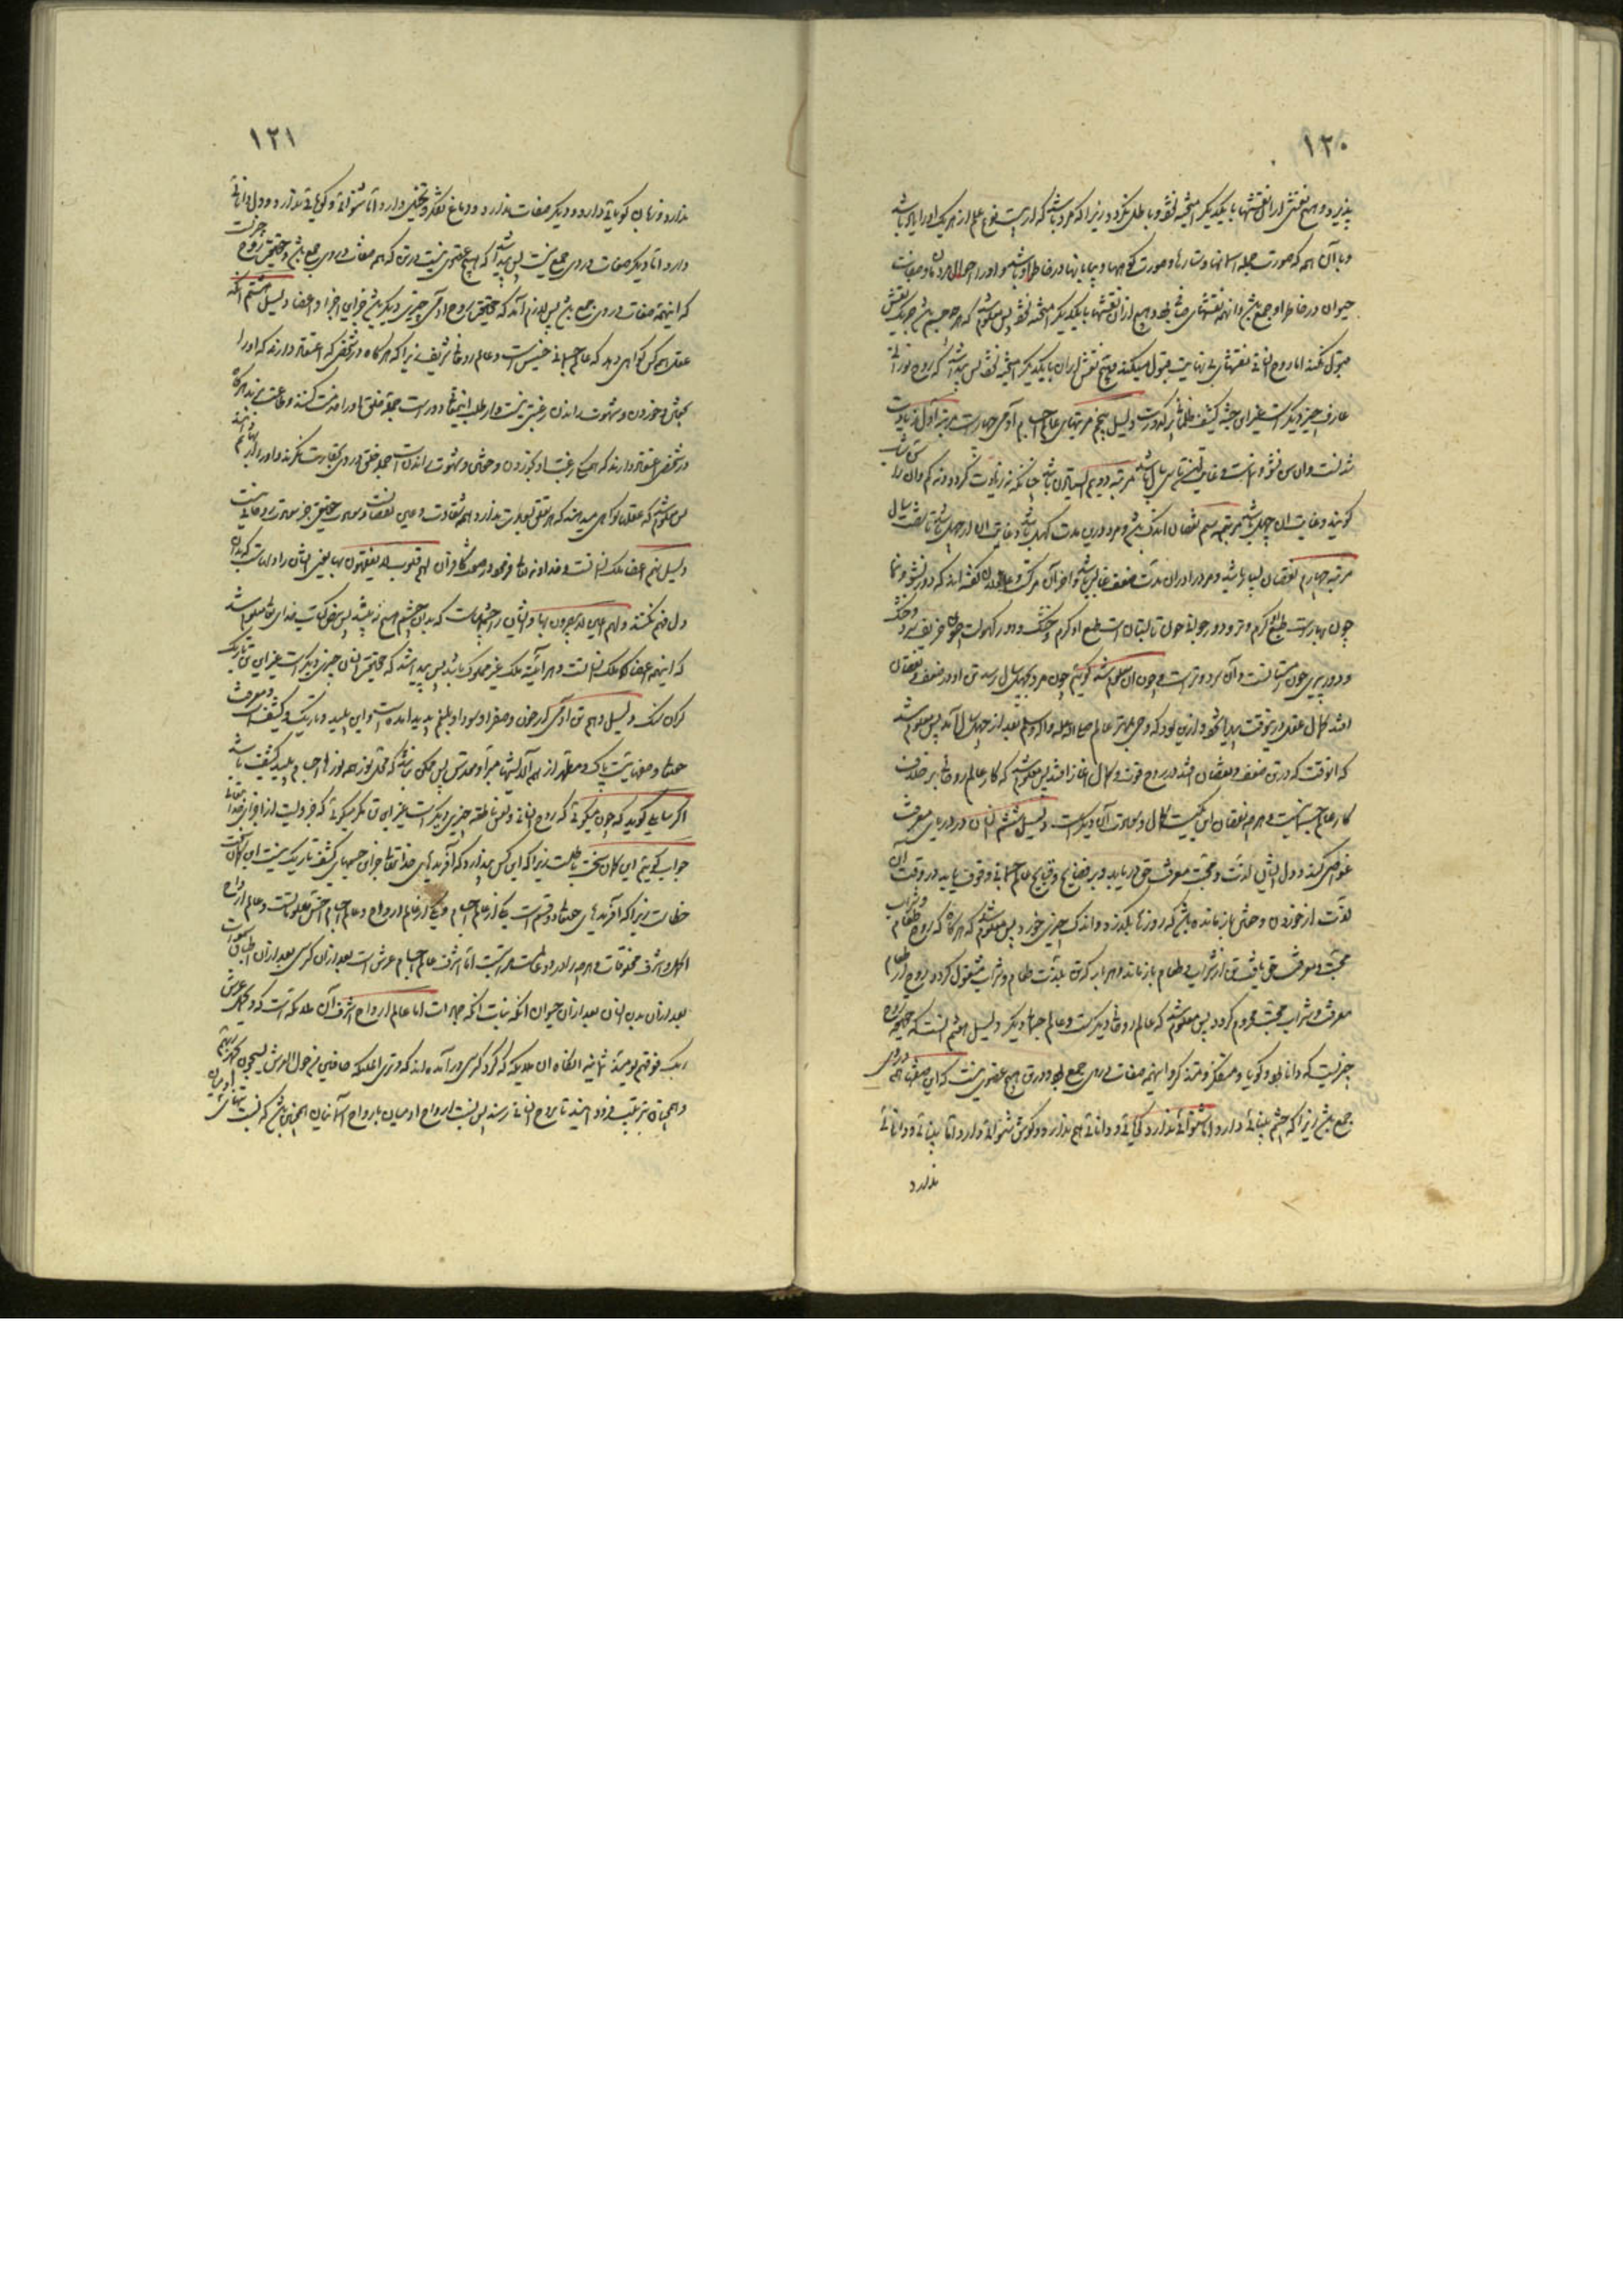 ۱۲۰
پذیرد و هیچ نقش از این نقشها با یکدیگر آمیخته نشود و باطل نگردد زیرا که مرد باشد که او بیست نوع علم از هر یک او را یاد باشد
و با آن همه که صورت جمله آسمانها و ستارها و صورت کوهها و بیابانها در خاطر او باشد و او را احوال مردمان و صفات
حیوان در خاطر او جمع باشد و این همه نقشهای مختلف و هیچ از آن نقشها با یکدیگر آمیخته نشود پس معلوم شد که هر چه جسم باشد جز یک نقش
قبول نکند اما روح انسانی نقشهای بی نهایت قبول میکند و هیچ نقش از آن با یکدیگر آمیخته نشود پس پیدا شد که روح نورانی
عارف چیز دیگر است غیر این جثه کثیف ظلمانی پر کدورت دلیل پنجم مرتبهای عالم اجسام آدمی چهار است مرتبه اول زیادت
شدنست و آن سن نشو و نماست و غایت این تا سی سال باشد مرتبه دویم ایستادن باشد چنانکه نه زیادت گردد و نه کم و آن را سن شباب
گویند و غایت آن چهل باشد مرتبه سیم نقصان اندک باشد و مرد درین مدت کهل باشد و غایت آن از چهل باشد تا شصت سال
مرتبه چهارم نقصان بسیار باشد و مرد را در آن مدت ضعف غالب باشد و آخر آن مرگست و عاقلان گفته اند که در نشو و نما
چون بهارست طبع گرم و تر و در جوانی چون تابستان است طبع او گرم و خشک و در کهولت چون خریف سرد و خشک
و در پیری چون زمستانست و آن سرد و تر است و چون این معلوم شد گوییم چون مرد بچهل سال رسد تن او در ضعف و نقصان
افتد کمال عقل در آن وقت پیدا شود و ازین بود که وحی بمهتر عالم صلی الله علیه و آله وسلم بعد از چهل سال آمد پس معلوم شد
که آنوقت که در تن ضعف و نقصان افتد در روح قوت و کمال آغاز افتد پس معلوم شد که کار عالم روحانی بر خلاف
کار عالم جسمانیست و هر چه نقصان این یکیست کمال و سعادت آن دیگر است دلیل ششم انسان در دریای معرفت
غواصی کند و دل ایشان لذت و محبت معرفت حق دریابد و بر فضایح و قبایح عالم جسمانی وقوف یابد در وقت آن
لذت از خوردن و خفتن باز مانده باشد که روزها بگذرد و اندک چیزی خورد پس معلوم شد که هرگاه که روح طعام و شراب
محبت و معرفت حق یافت تن از شراب و طعام باز ماند و هر بار که تن بلذت طعام و شراب مشغول گردد روح از طعام
معرفت و شراب محبت محروم گردد پس معلوم شد که عالم روحانی دیگرست و عالم جسمانی دیگر دلیل هفتم آنست که حقیقت روح
چیزیست که دانا بود و گویا و متفکر و متذکر و این همه صفات در وی جمع بود و در تن هیچ عضوی نیست که این صفتها همه در وی
جمع باشد زیرا که چشم بینائی دارد اما شنوائی ندارد و گویائی و دانائی هم ندارد و گوش شنوائی دارد اما بینائی و دانائی
ندارد
۱۲۱
ندارد و زبان گویائی دارد و دیگر صفات ندارد و دماغ تفکر و تخیل دارد اما شنوائی و گویائی ندارد و دل دانائی
دارد اما دیگر صفات در وی جمع نیست پس پیدا شد که هیچ عضوی نیست در تن که همه صفات در وی جمع باشد و حقیقت روح چیزیست
که این همه صفات در وی جمع باشد پس لازم آمد که حقیقت روح آدمی چیزی دیگر باشد جز این اجزا و اعضا دلیل هشتم آنکه
عقل همه کس گواهی دهد که عالم جسمانی خسیس است و عالم روحانی شریف زیرا که هر گاه در شخصی که اعتقاد دارند که او را
بجماع و خوردن و شهوت راندن رغبتی نیست و از طلب اینها دور است جمله خلق او را خدمت کنند
در شخصی اعتقاد دارند که همه کار رغبت او بخوردن و خفتن و شهوت راندن است جمله خلق در وی بحقارت نگرند و او را بهایم شمرند
پس معلوم شد که عقلها گواهی میدهند که هر تعلق بعالم تن دارد همه شقاوت و عین نقصانست و سعادت حقیقی جز سعادت روحانی نیست
دلیل نهم اعضا ملک انسانست و خداوند تعالی فرمود در صفت کافران لهم قلوب لا یفقهون بها یعنی ایشان را دلهاست که بدان
دل فهم نکنند و لهم اعین لا یبصرون بها و ایشان را چشمهاست که بدان چشم هیچ نه بینند پس بنص کتاب خدای تعالی معلوم شد
که این همه اعضا ملک انسانست و هر آینه ملک غیر مملوک باشد پس پیدا شد که حقیقت انسان چیزی دیگر است غیر این تن تاریک
گران سنگ دلیل دهم تن آدمی از خون و صفرا و سودا و بلغم پدید آمده است و این پلید و تاریک و کثیف است و معرفت
حقتعالی در نهایت پاک و مطهر از همه آلایشها مبرا و مقدس پس ممکن نباشد که محل نور همه نورها اجسام پلید کثیف باشد
اگر سایلی گوید که چون میگوئی که روح انسانی و نفس ناطقه چیزی دیگر است غیر این تن مگر میگوئی که جزویست از اجزای خدا تعالی
جواب گویم این گمان سخت باطلست زیرا که این کس پندارد که آفریدهای خدا تعالی جز این جسمهای کثیف تاریک نیست این گمان سخت
خطاست زیرا که آفریدهای حقتعالی دو قسم است یکی از عالم اجسام و یکی از عالم ارواح و عالم اجسام اخس معلوماتست و عالم ارواح
اکمل و اشرف مخلوقات و هر چه در این دو عالمست مراتبست اما اشرف عالم اجسام عرش است بعد از آن کرسی بعد از آن اطباق سموات
بعد از آن بدن انسان بعد از آن حیوان آنگه نبات آنگه جمادات اما عالم ارواح اشرف آن ملائکه است که و یحمل عرش
ربک فوقهم یومئذ ثمانیه آنگاه آن ملایکه که گرد کرسی در آمده اند که و تری الملئکه حافین من حول العرش یسبحون بحمد ربهم
و همچنان بترتیب فرود آیند تا بروح انسانی رسند پس نسبت ارواح آدمیان بارواح آسمانیان همچنین باشد که نسبت تنهای آدمیان